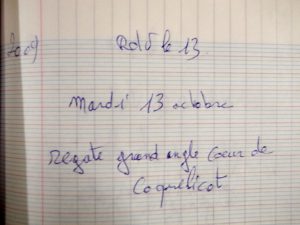 2009
RdV le 13
Mardi 13 octobre
regate grand angle Coeur de
Coquelicot